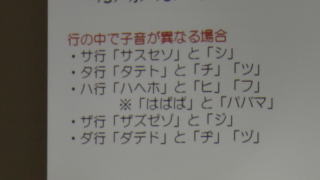 行の中で子音が異なる場合
・サ行「サスセソ」と「シ」
・タ行「タテト」と「チ」「ツ」
・ハ行「ハヘホ」と「ヒ」「フ」
※「はばぱ」と「パバマ」
・ザ行「ザズゼゾ」と「ジ」
・ダ行「ダデド」と「ヂ」「ヅ」